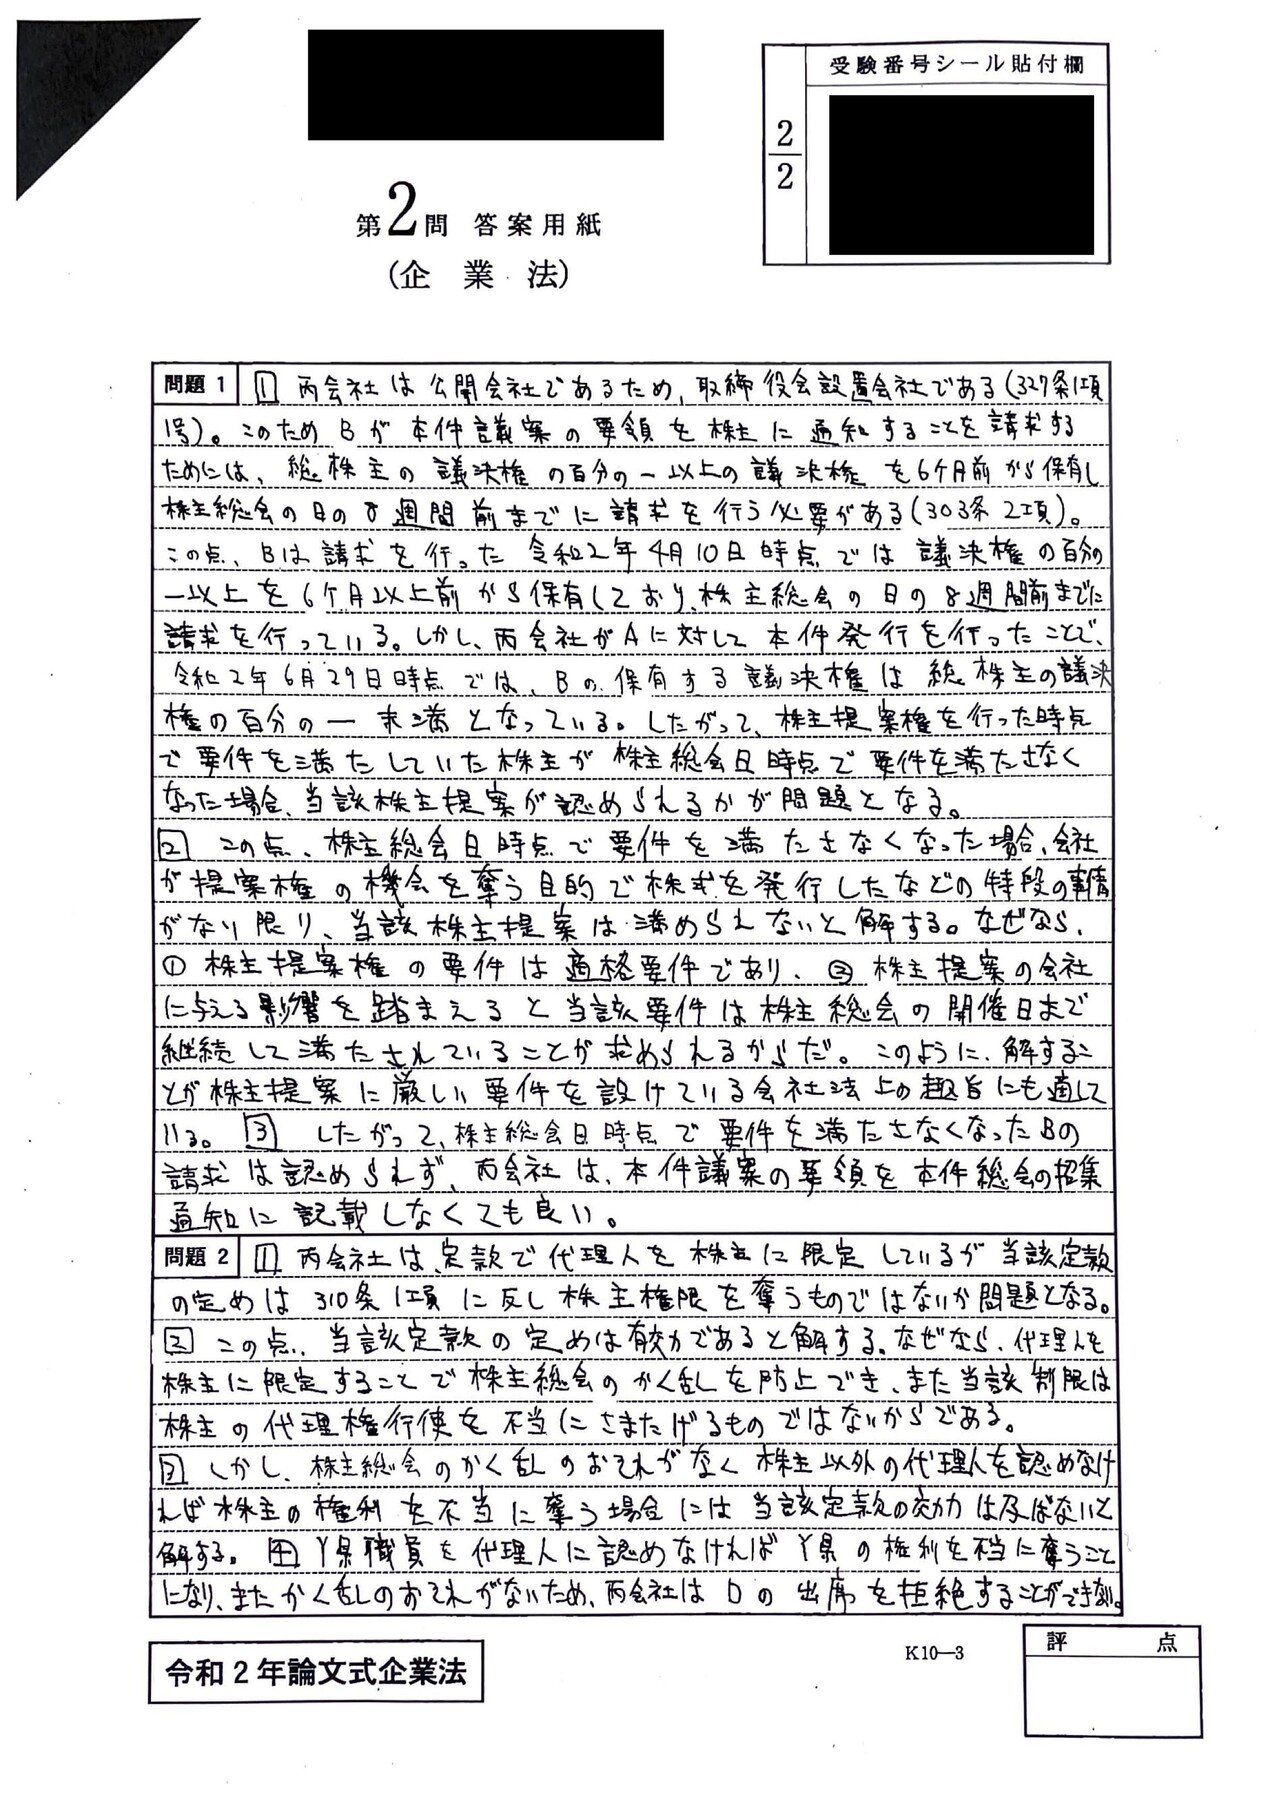 受験番号シール貼付欄
2
2
第2問 答案用紙
(企業法)
問題1 1 丙会社は公開会社であるため、取締役会設置会社である(327条1項
1号)。このためBが本件議案の要領を株主に通知することを請求する
ためには、総株主の議決権の百分の一以上の議決権を6ケ月前から保有し
株主総会の日の8週間前までに請求を行う必要がある(303条2項)。
この点、Bは請求を行った令和2年4月10日時点では議決権の百分の
一以上を6ケ月以上前から保有しており、株主総会の日の8週間前までに
請求を行っている。しかし、丙会社がAに対して本件発行を行ったことで、
令和2年6月29日時点では、Bの保有する議決権は総株主の議決
権の百分の一未満となっている。したがって、株主提案権を行った時点
で要件を満たしていた株主が株主総会日時点で要件を満たさなく
なった場合、当該株主提案が認められるかが問題となる。
2 この点、株主総会日時点で要件を満たさなくなった場合、会社
が提案権の機会を奪う目的で株式を発行したなどの特段の事情
がない限り、当該株主提案は満められないと解する。なぜなら、
① 株主提案権の要件は適格要件であり、② 株主提案の会社
に与える影響を踏まえると当該要件は株主総会の開催日まで
継続して満たされていることが求められるからだ。このように、解するこ
とが株主提案に厳しい要件を設けている会社法上の趣旨にも適して
いる。 3 したがって、株主総会日時点で要件を満たさなくなったBの
請求は認められず、丙会社は、本件議案の要領を本件総会の招集
通知に記載しなくても良い。
問題2 1 丙会社は、定款で代理人を株主に限定しているが当該定款
の定めは310条1項に反し株主権限を奪うものではないか問題となる。
2 この点、当該定款の定めは有効であると解する。なぜなら、代理人を
株主に限定することで株主総会のかく乱を防止でき、また当該制限は
株主の代理権行使を不当にさまたげるものではないからである。
3 しかし、株主総会のかく乱のおそれがなく株主以外の代理人を認めなけ
れば株主の権利を不当に奪う場合には当該定款の効力は及ばないと
解する。 4 Y県職員を代理人に認めなければY県の権利を不当に奪うこと
になり、またかく乱のおそれがないため、丙会社はDの出席を拒絶することができない。
令和2年論文式企業法
K10—3
評 点